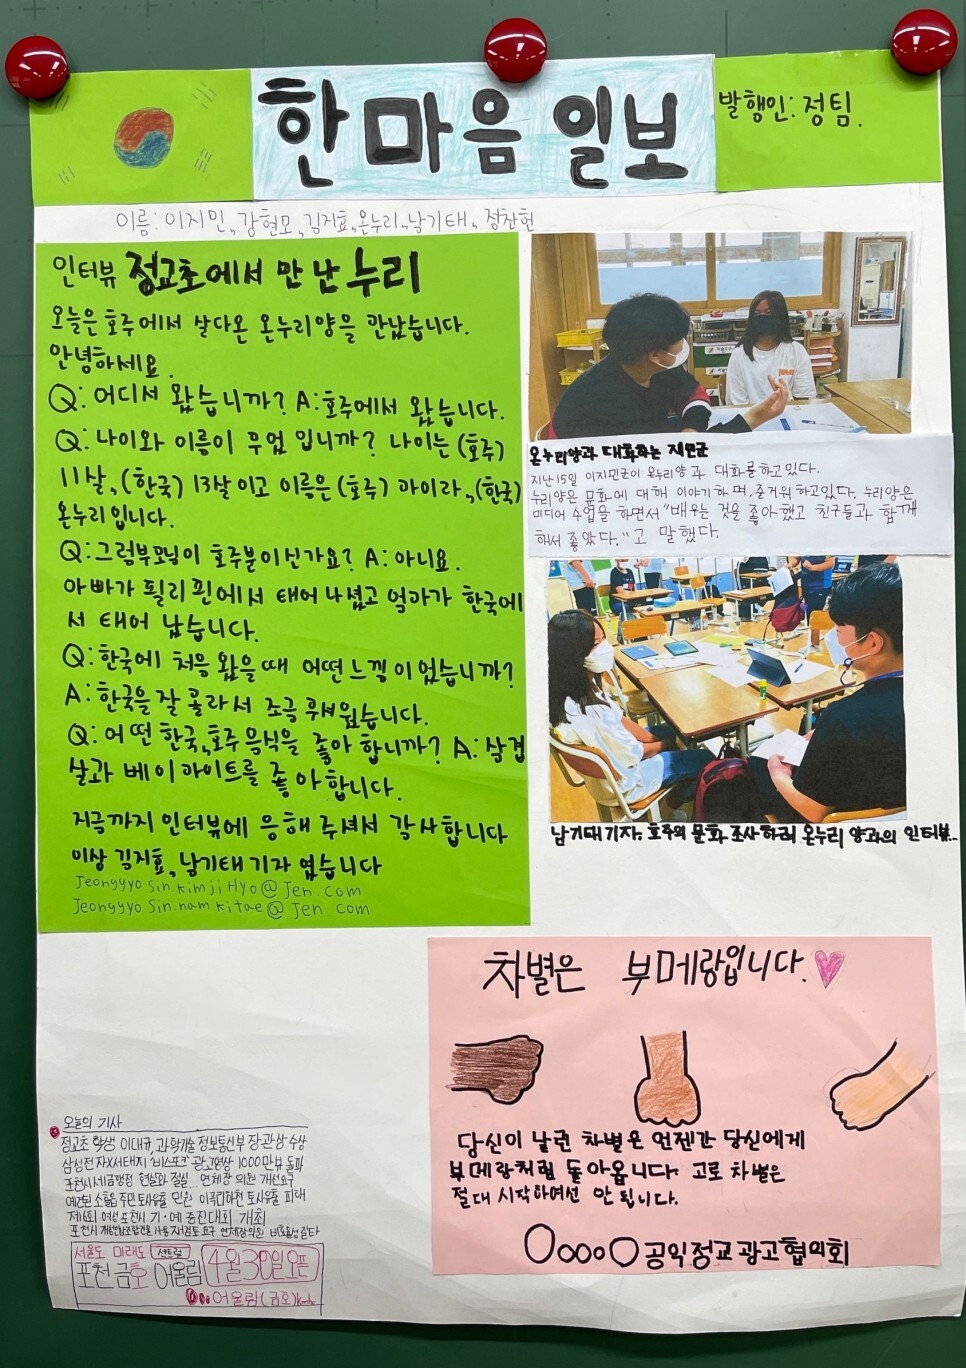 한마음일보
발행인: 정팀.
이름: 이지민, 강현모, 김지효, 온누리, 남기태, 정찬헌
인터뷰 정교초에서 만난 누리
오늘은 호주에서 살다온 온누리양을 만났습니다.
안녕하세요.
Q: 어디서 왔습니까? A: 호주에서 왔습니다.
Q: 나이와 이름이 무엇 입니까? 나이는 (호주)
11살, (한국) 13살이고 이름은 (호주) 아이라, (한국)
온누리 입니다.
Q: 그럼부모님이 호주분이신가요? A: 아니요.
아빠가 필리핀에서 태어나셨고 엄마가 한국에
서 태어 났습니다.
Q: 한국에 처음 왔을때 어떤느낌이었습니까?
A: 한국을 잘 몰라서 조금 무서웠습니다.
Q: 어떤 한국, 호주 음식을 좋아 합니까? A: 삼겹
살과 베이마이트를 좋아합니다.
지금까지 인터뷰에 응해 주셔서 감사합니다
이상 김지효, 남기태 기자 였습니다
Jeongyyo sin.kimjiHyo@Jen.com
Jeongyyo sin.namkitae@Jen.com
온누리양과 대화하는 지민군
지난15일 이지민군이 온누리양과 대화를하고있다.
누리양은 문화에 대해 이야기하며, 즐거워하고있다. 누리양은
미디어 수업을 하면서 "배우는 것을 좋아했고 친구들과 함께
해서 좋았다."고 말했다.
남기태기자: 호주의 문화 조사하러 온누리 양과의 인터뷰...
차별은 부메랑입니다.
당신이 날린 차별은 언젠간 당신에게
부메랑처럼 돌아옵니다. 고로 차별은
절대 시작하여선 안 됩니다.
공익정교광고협의회
오늘의 기사
정교초 학생 이대규, 과학기술 정보통신부 장관상 수상
삼성전자X서태지 '비스포크' 광고영상 1000만뷰 돌파
포천시세금행정 현실화 절실 연제창 의원 개선요구
주민 토사유출 민원 이곡리하천 토사유출 피해
여성 포천시 기·예 경진대회 개최
포천시
서울도 미래도 센트럴
포천금호어울림 4월30일오픈
어울림(금호)